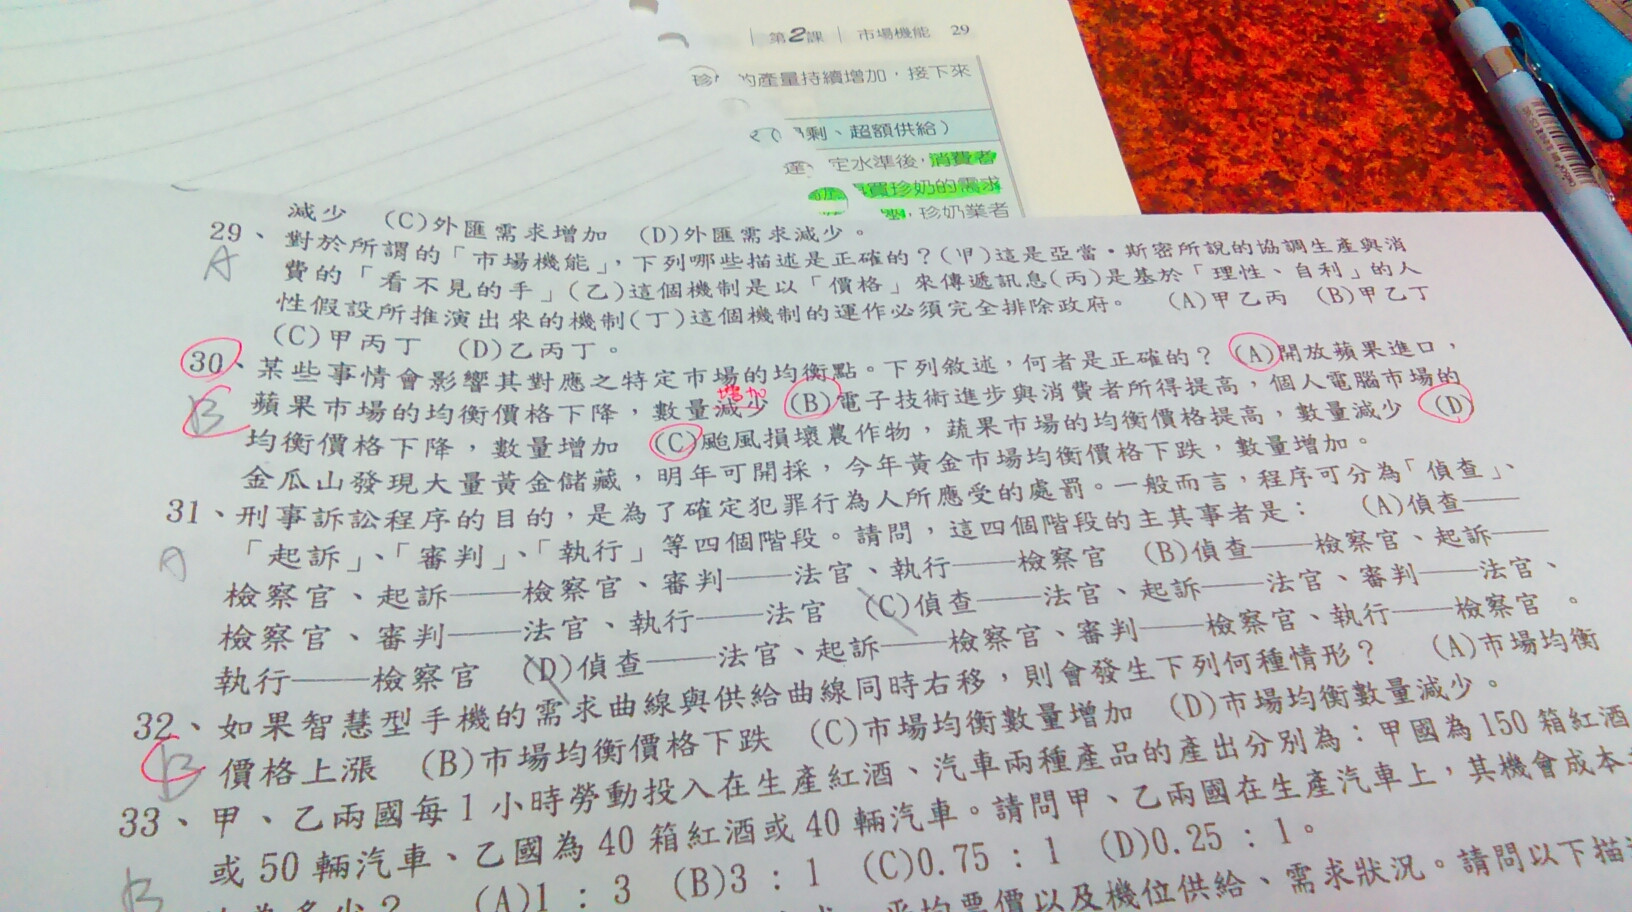 第2課 市場機能 29
的產量持續增加，接下來
剩、超額供給）
定水準後，消費者
買珍奶的需求
珍奶業者
減少 (C)外匯需求增加 (D)外匯需求減少。
29、對於所謂的「市場機能」，下列哪些描述是正確的？(甲)這是亞當・斯密所說的協調生產與消
A
費的「看不見的手」(乙)這個機制是以「價格」來傳遞訊息(丙)是基於「理性、自利」的人
性假設所推演出來的機制(丁)這個機制的運作必須完全排除政府。 (A)甲乙丙 (B)甲乙丁
(C)甲丙丁 (D)乙丙丁。
30、某些事情會影響其對應之特定市場的均衡點。下列敘述，何者是正確的？ (A)開放蘋果進口，
B
增加
蘋果市場的均衡價格下降，數量減少 (B)電子技術進步與消費者所得提高，個人電腦市場的
均衡價格下降，數量增加 (C)颱風損壞農作物，蔬果市場的均衡價格提高，數量減少 (D)
金瓜山發現大量黃金儲藏，明年可開採，今年黃金市場均衡價格下跌，數量增加。
31、刑事訴訟程序的目的，是為了確定犯罪行為人所應受的處罰。一般而言，程序可分為「偵查」、
A
「起訴」、「審判」、「執行」等四個階段。請問，這四個階段的主其事者是： (A)偵查——
檢察官、起訴——檢察官、審判——法官、執行——檢察官 (B)偵查——檢察官、起訴——
檢察官、審判——法官、執行——法官 (C)偵查——法官、起訴——法官、審判——法官、
執行——檢察官 (D)偵查——法官、起訴——檢察官、審判——檢察官、執行——檢察官。
32、如果智慧型手機的需求曲線與供給曲線同時右移，則會發生下列何種情形？ (A)市場均衡
B
C
價格上漲 (B)市場均衡價格下跌 (C)市場均衡數量增加 (D)市場均衡數量減少。
33、甲、乙兩國每1小時勞動投入在生產紅酒、汽車兩種產品的產出分別為：甲國為150箱紅酒
B
或50輛汽車、乙國為40箱紅酒或40輛汽車。請問甲、乙兩國在生產汽車上，其機會成本
為多少？ (A)1：3 (B)3：1 (C)0.75：1 (D)0.25：1。
平均票價以及機位供給、需求狀況。請問以下描